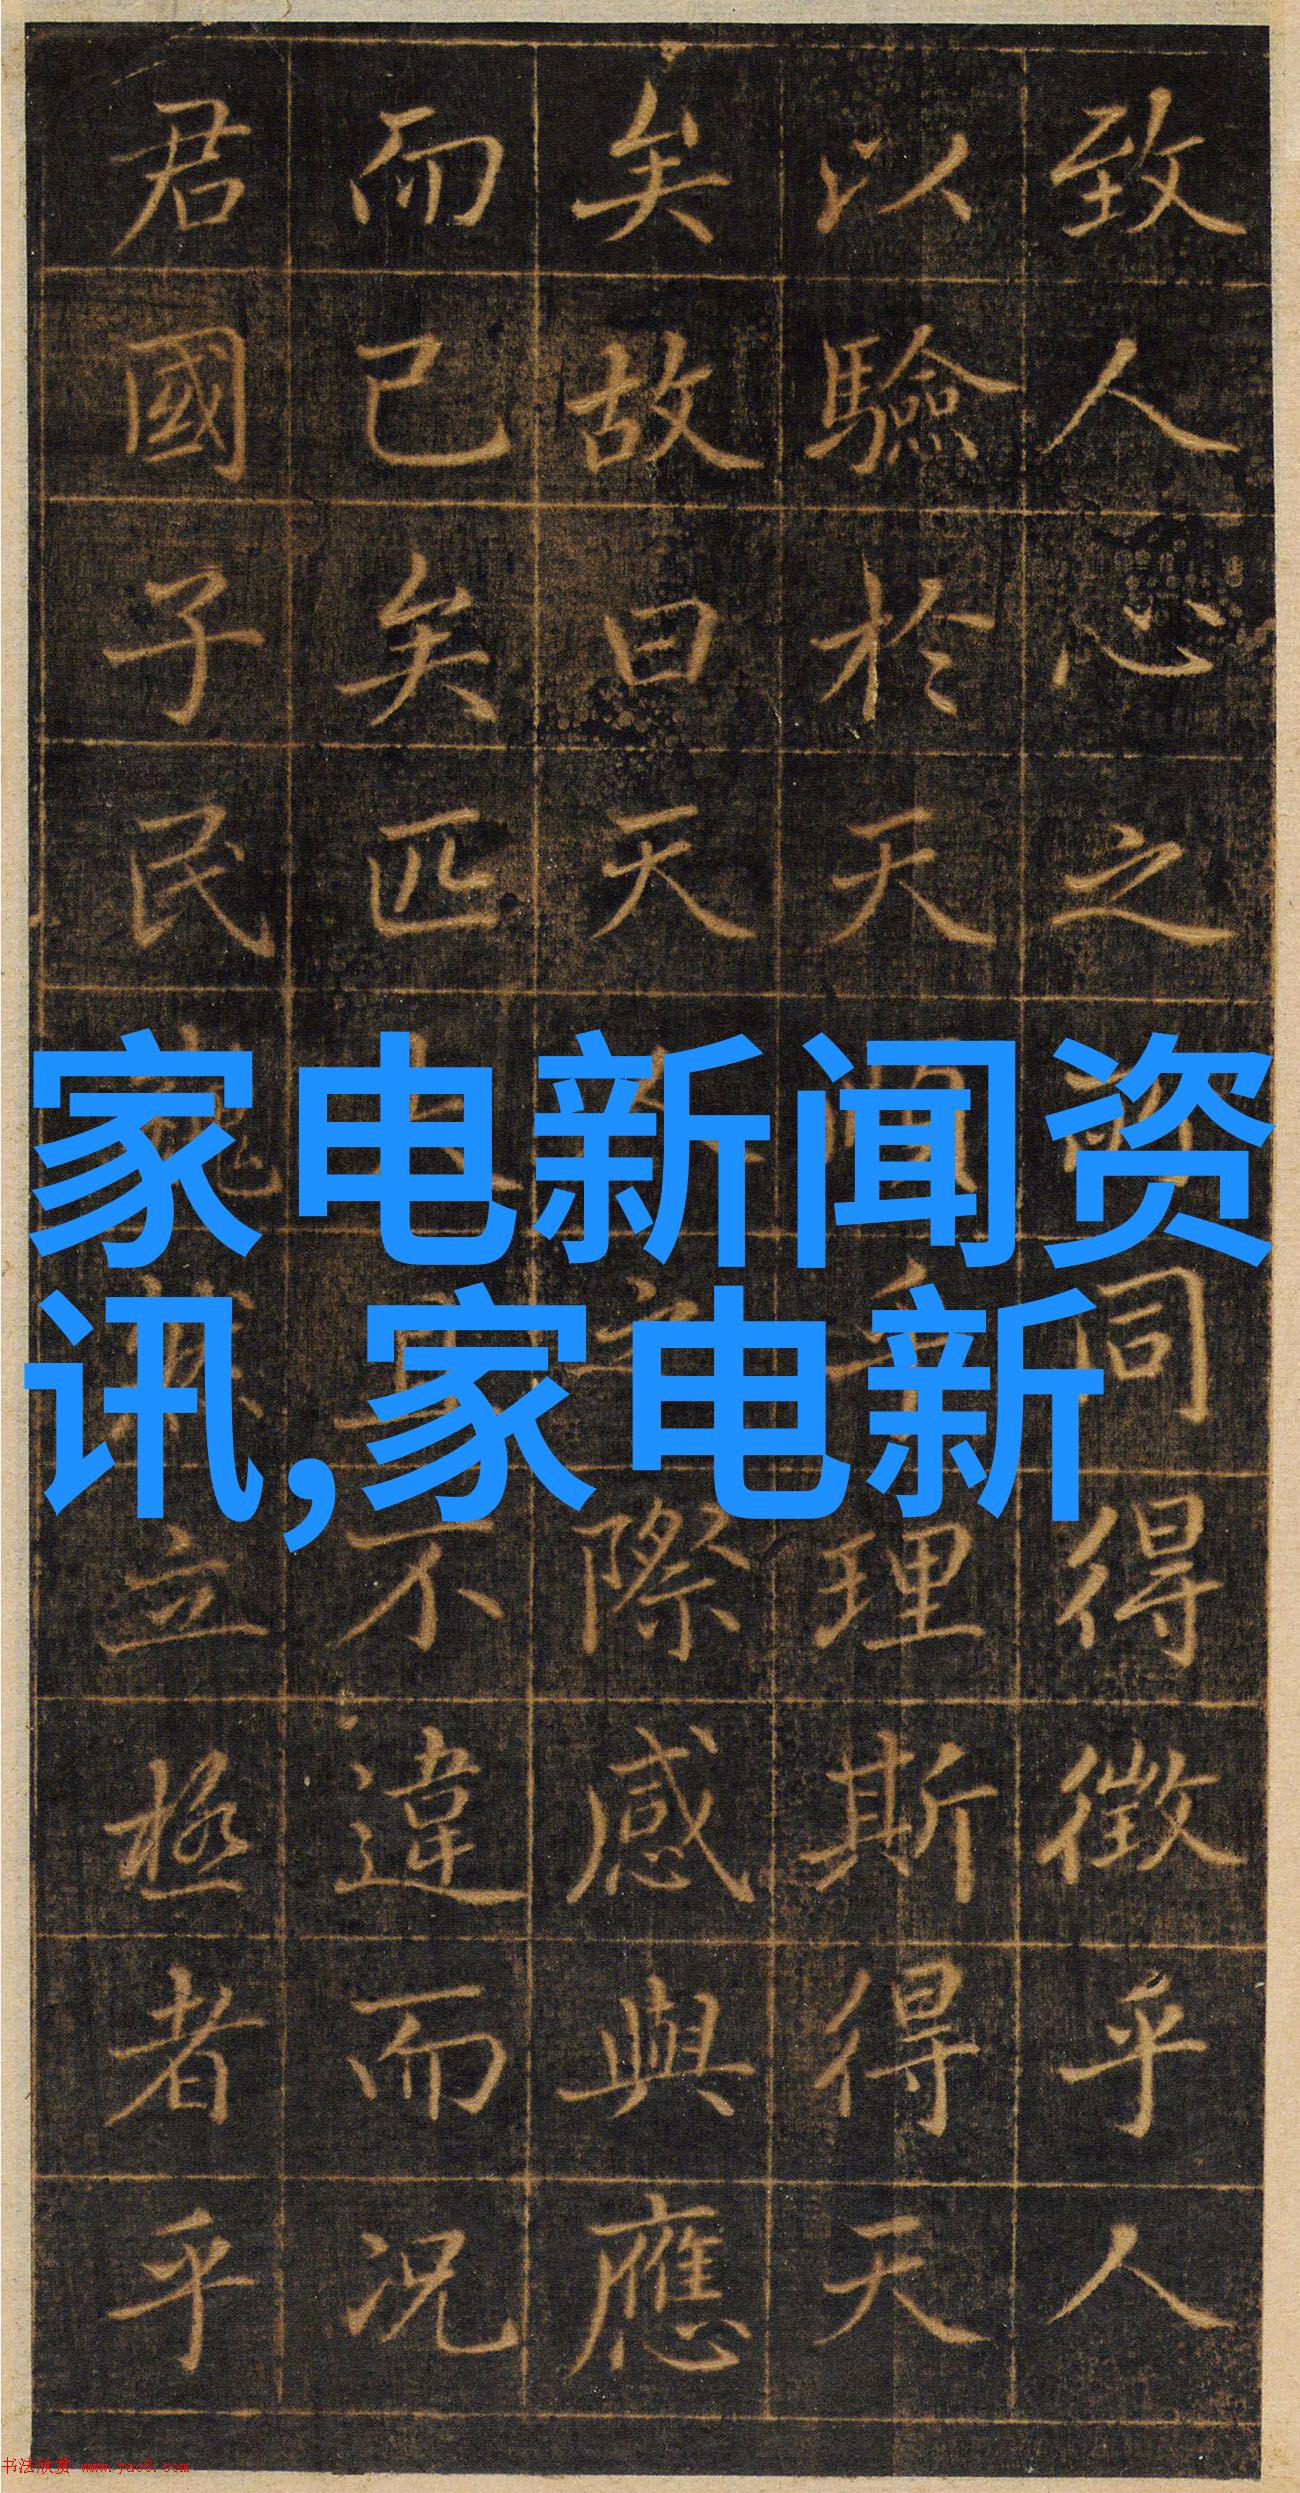 致人心之同得徵乎人
以驗於天理斯得天
矣故曰天際感與應
而已矣匹不違而况
君國子民立極者乎
家电新闻资
讯,家电新
书法欣赏 www.yac8.com